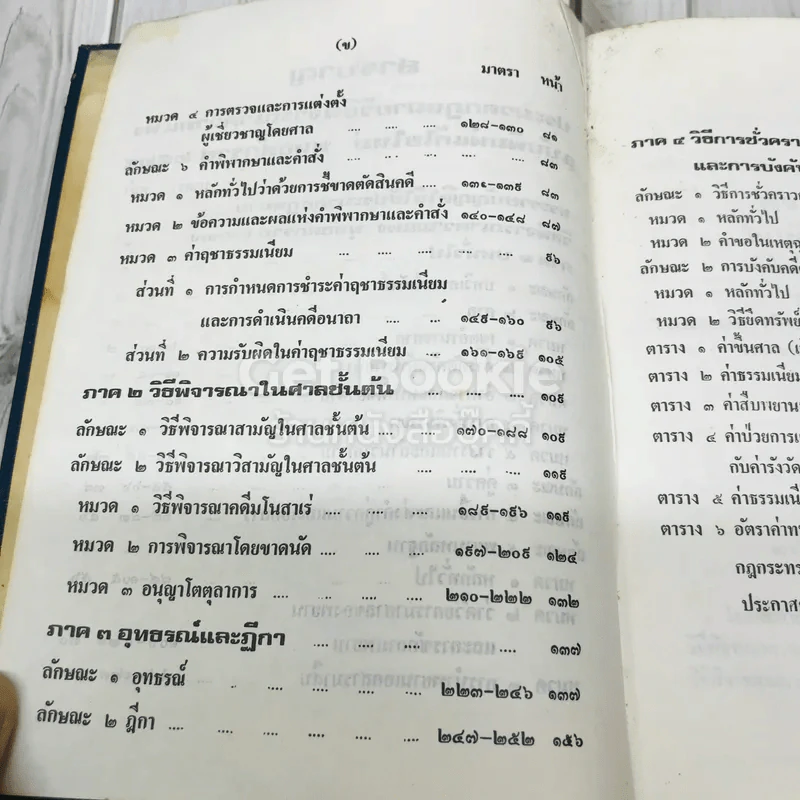 (ข)
มาตรา หน้า
หมวด ๔ การตรวจและการแต่งตั้ง
ผู้เชี่ยวชาญโดยศาล .... .... .... ๑๒๘-๑๓๐ ๘๑
ลักษณะ ๖ คำพิพากษาและคำสั่ง .... .... .... .... ๘๓
หมวด ๑ หลักทั่วไปว่าด้วยการชี้ขาดตัดสินคดี .... ๑๓๑-๑๓๙ ๘๓
หมวด ๒ ข้อความและผลแห่งคำพิพากษาและคำสั่ง ๑๔๐-๑๔๘ ๘๗
หมวด ๓ ค่าฤชาธรรมเนียม .... .... .... .... .... ๙๖
ส่วนที่ ๑ การกำหนดการชำระค่าฤชาธรรมเนียม
และการดำเนินคดีอนาถา .... .... ๑๔๙-๑๖๐ ๙๖
ส่วนที่ ๒ ความรับผิดในค่าฤชาธรรมเนียม .... ๑๖๑-๑๖๙ ๑๐๕
ภาค ๒ วิธีพิจารณาในศาลชั้นต้น .... .... .... ๑๐๙
ลักษณะ ๑ วิธีพิจารณาสามัญในศาลชั้นต้น .... .... ๑๗๐-๑๘๘ ๑๐๙
ลักษณะ ๒ วิธีพิจารณาวิสามัญในศาลชั้นต้น .... .... .... ๑๑๙
หมวด ๑ วิธีพิจารณาคดีมโนสาเร่ .... .... .... ๑๘๙-๑๙๖ ๑๑๙
หมวด ๒ การพิจารณาโดยขาดนัด .... .... .... ๑๙๗-๒๐๙ ๑๒๔
หมวด ๓ อนุญาโตตุลาการ .... .... .... .... ๒๑๐-๒๒๒ ๑๓๒
ภาค ๓ อุทธรณ์และฎีกา .... .... .... .... .... ๑๓๗
ลักษณะ ๑ อุทธรณ์ .... .... .... .... .... ๒๒๓-๒๔๖ ๑๓๗
ลักษณะ ๒ ฎีกา .... .... .... .... .... .... ๒๔๗-๒๕๒ ๑๕๖
Get Bookie
ร้านหนังสือบุ๊คกี้
ภาค ๔ วิธีการชั่วครา
และการบังคับ
ลักษณะ ๑ วิธีการชั่วคราว
หมวด ๑ หลักทั่วไป
หมวด ๒ คำขอในเหตุฉุ
ลักษณะ ๒ การบังคับคดี
หมวด ๑ หลักทั่วไป
หมวด ๒ วิธียึดทรัพย์
ตาราง ๑ ค่าขึ้นศาล
ตาราง ๒ ค่าธรรมเนียม
ตาราง ๓ ค่าสืบพยาน
ตาราง ๔ ค่าป่วยการ
กับค่ารังวัด
ตาราง ๕ ค่าธรรมเนี
ตาราง ๖ อัตราค่าท
กฎกระทร
ประกาศ